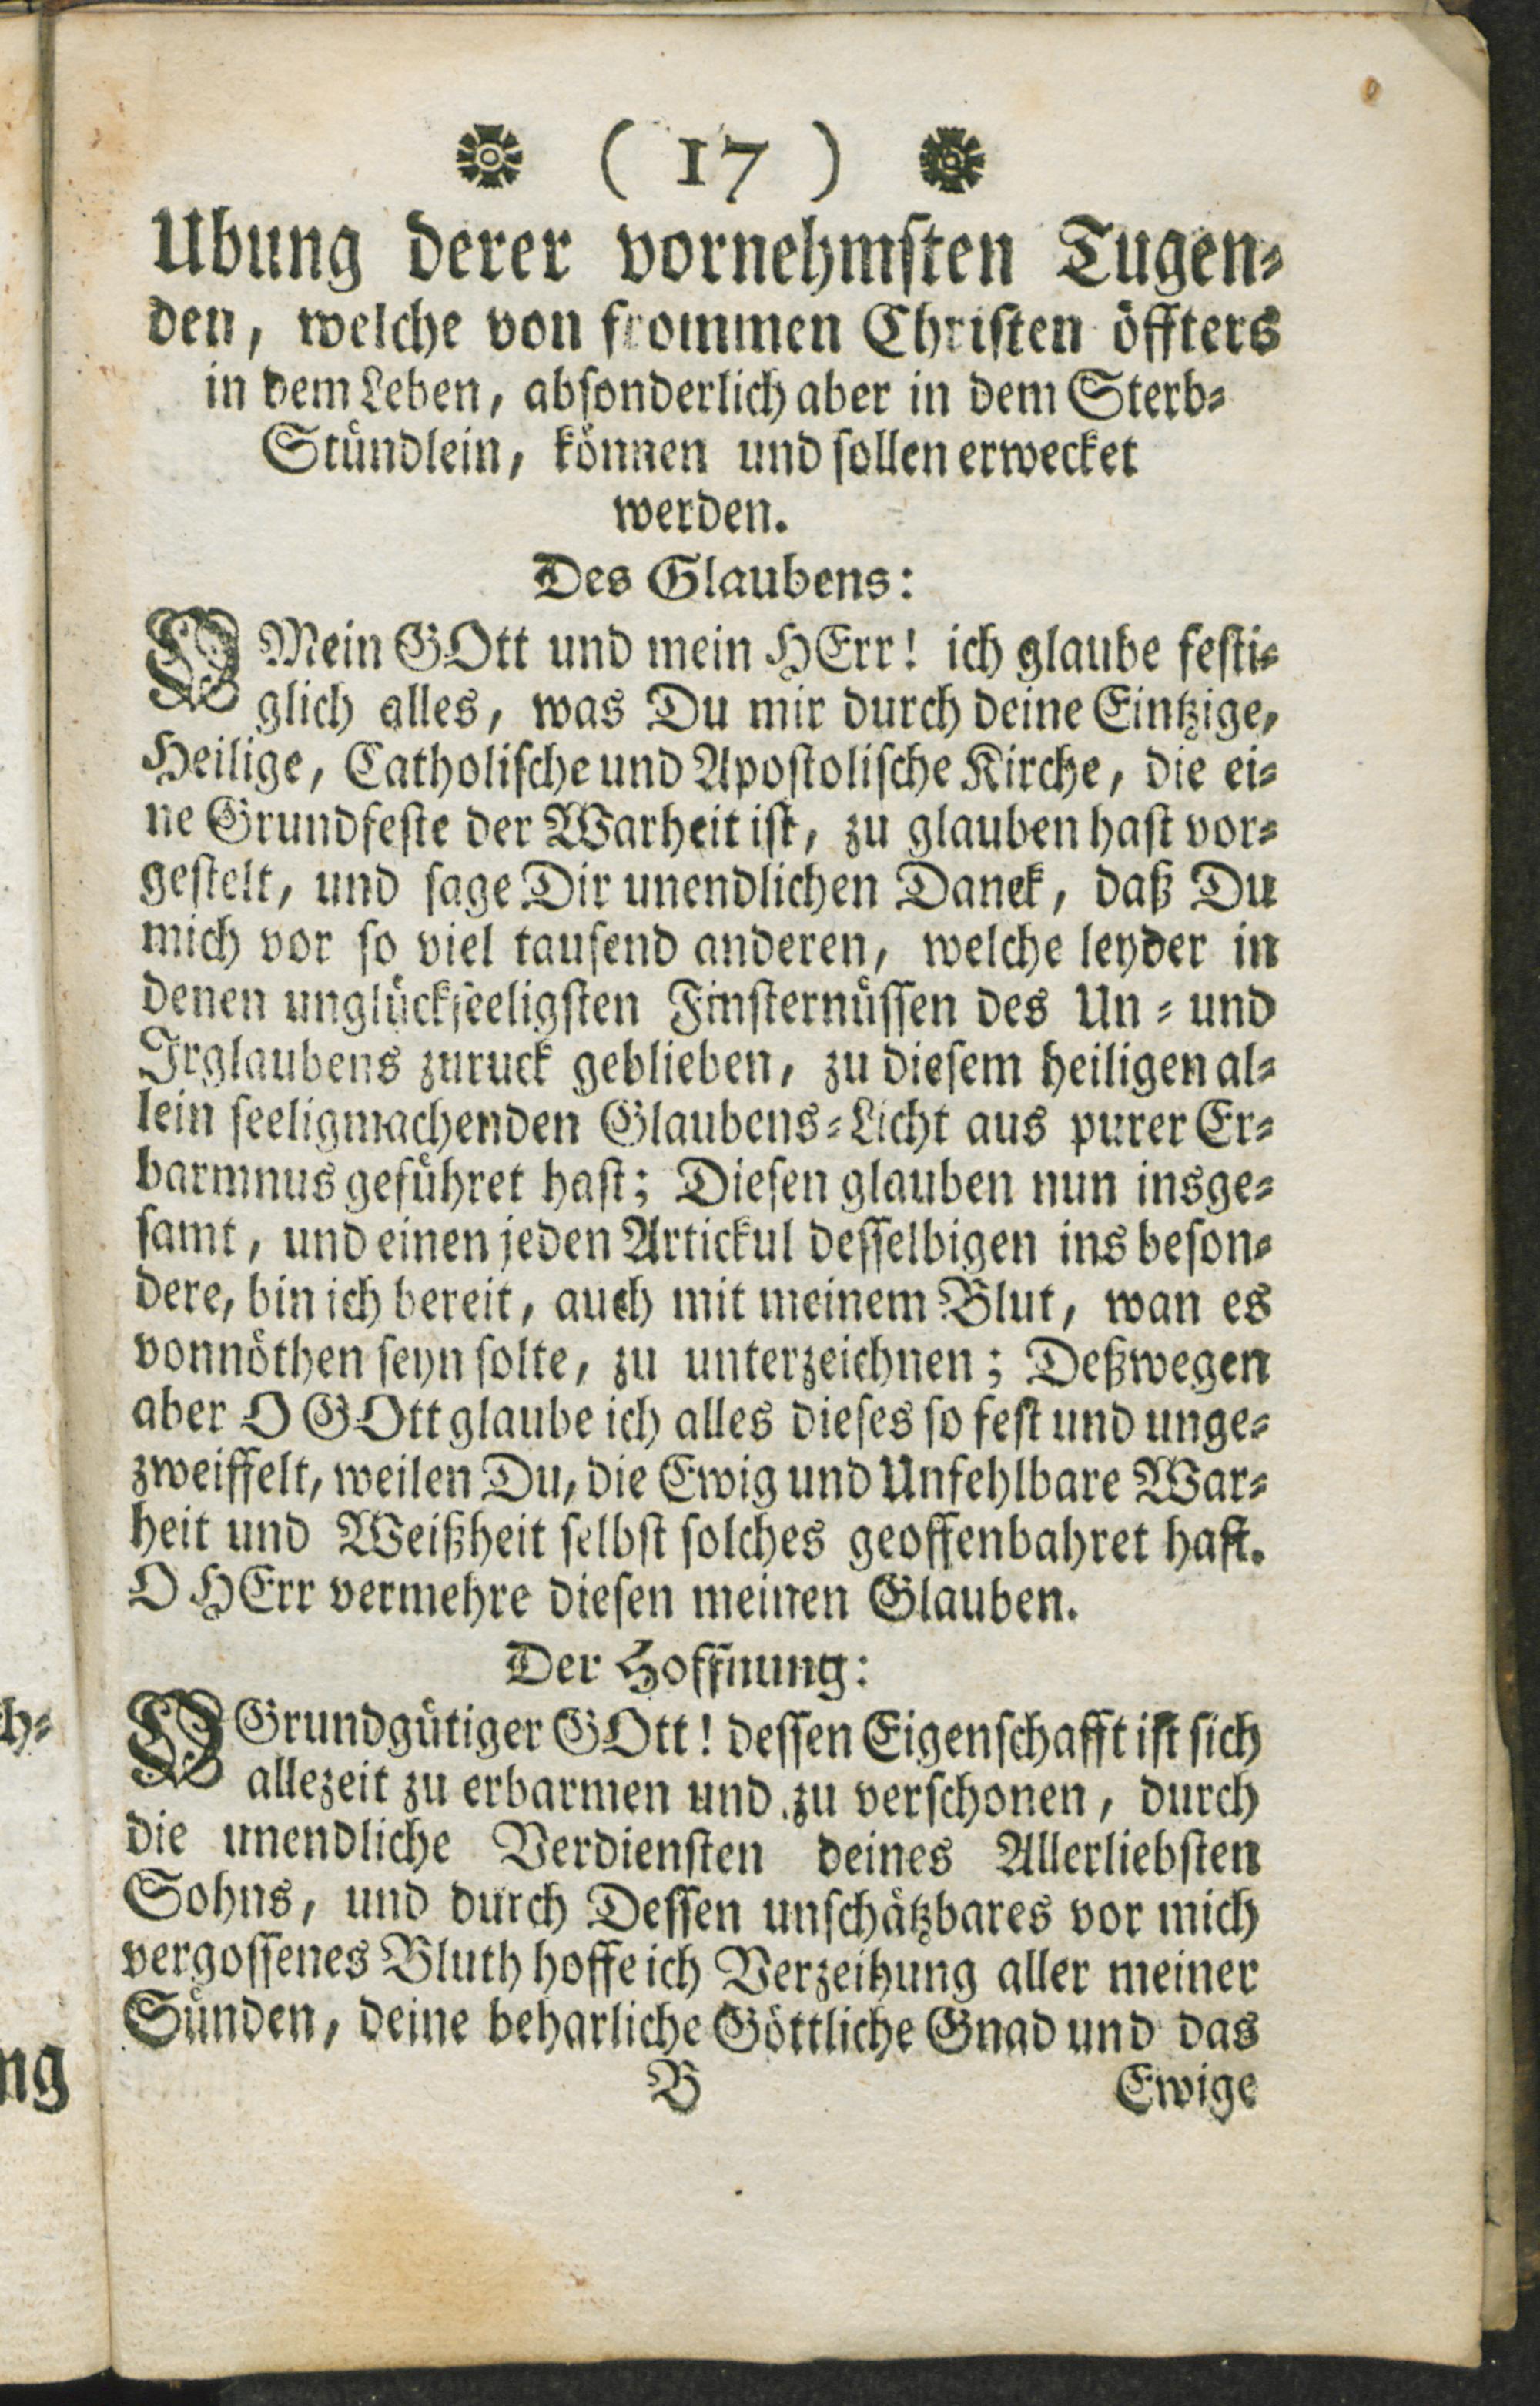 ( 17 )
Ubung derer vornehmsten Tugen-
den, welche von frommen Christen öffters
in dem Leben, absonderlich aber in dem Sterb-
Stündlein, können und sollen erwecket
werden.
Des Glaubens:
O Mein GOtt und mein HErr! ich glaube festi-
glich alles, was Du mir durch deine Eintzige,
Heilige, Catholische und Apostolische Kirche, die ei-
ne Grundfeste der Warheit ist, zu glauben hast vor-
gestelt, und sage Dir unendlichen Danck, daß Du
mich vor so viel tausend anderen, welche leyder in
denen unglückseeligsten Finsternüssen des Un- und
Irglaubens zuruck geblieben, zu diesem heiligen al-
lein seeligmachenden Glaubens-Licht aus purer Er-
barmnus geführet hast; Diesen glauben nun insge-
samt, und einen jeden Artickul desselbigen ins beson-
dere, bin ich bereit, auch mit meinem Blut, wan es
vonnöthen seyn solte, zu unterzeichnen; Deßwegen
aber O GOtt glaube ich alles dieses so fest und unge-
zweiffelt, weilen Du, die Ewig und Unfehlbare War-
heit und Weißheit selbst solches geoffenbahret hast.
O HErr vermehre diesen meinen Glauben.
Der Hoffnung:
O Grundgütiger GOtt! dessen Eigenschafft ist sich
allezeit zu erbarmen und zu verschonen, durch
die unendliche Verdiensten deines Allerliebsten
Sohns, und durch Dessen unschätzbares vor mich
vergossenes Bluth hoffe ich Verzeihung aller meiner
Sünden, deine beharliche Göttliche Gnad und das
B Ewige
h-
ng